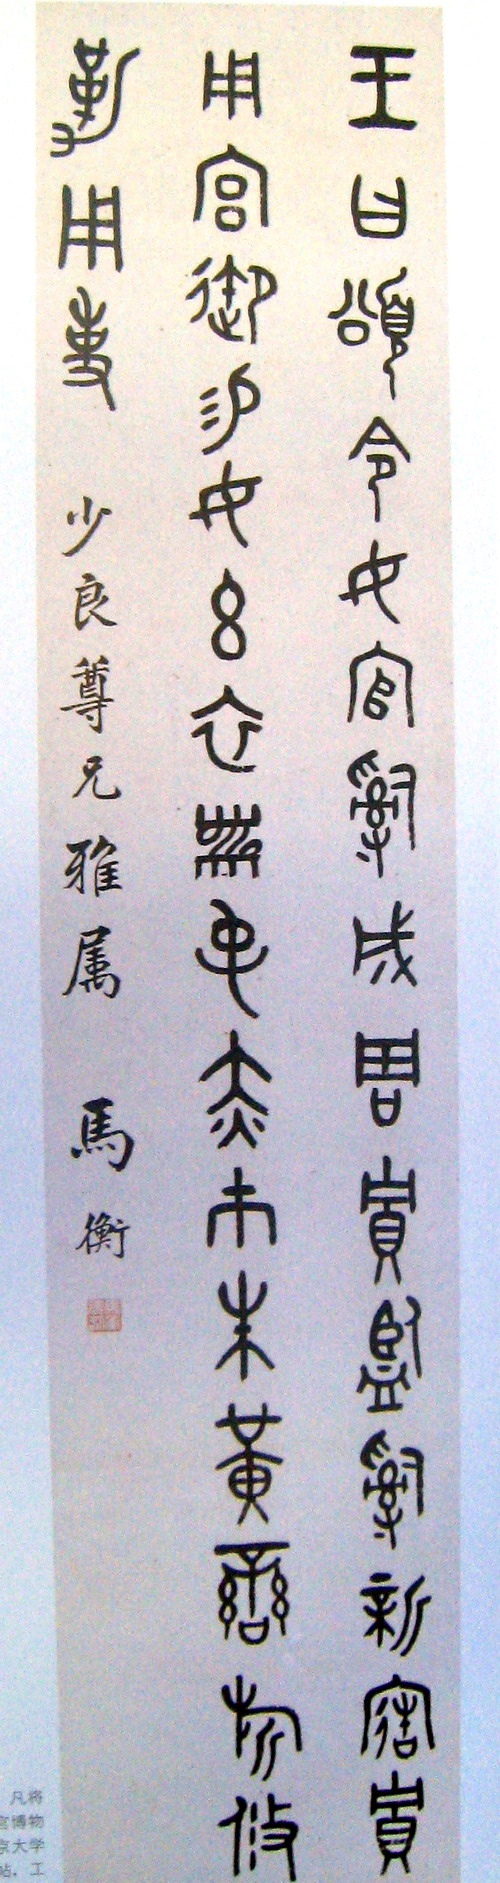 王曰頌令女官𤔲成周貯監𤔲新造貯
用宮御易女玄衣黹屯赤巿朱黃䜌旂攸
勒用事 少良尊兄雅属 馬衡
凡将
宫博物
京大学
帖，工